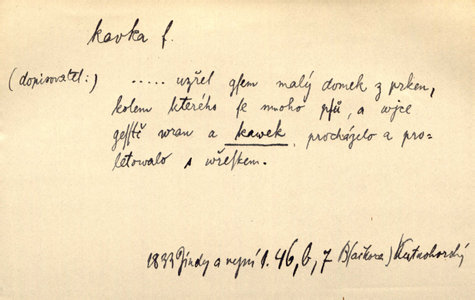 kavka f.
(dopisovatel:) ..... uzřel gsem malý domek z prken,
kolem kterého se mnoho psů, a wjce
gesstě wran a kawek procházelo a pro-
létowalo s wřeskem.
1833 Jindy a nynj 1. 46, 6, 7 B(ačkora) Kutnohorský